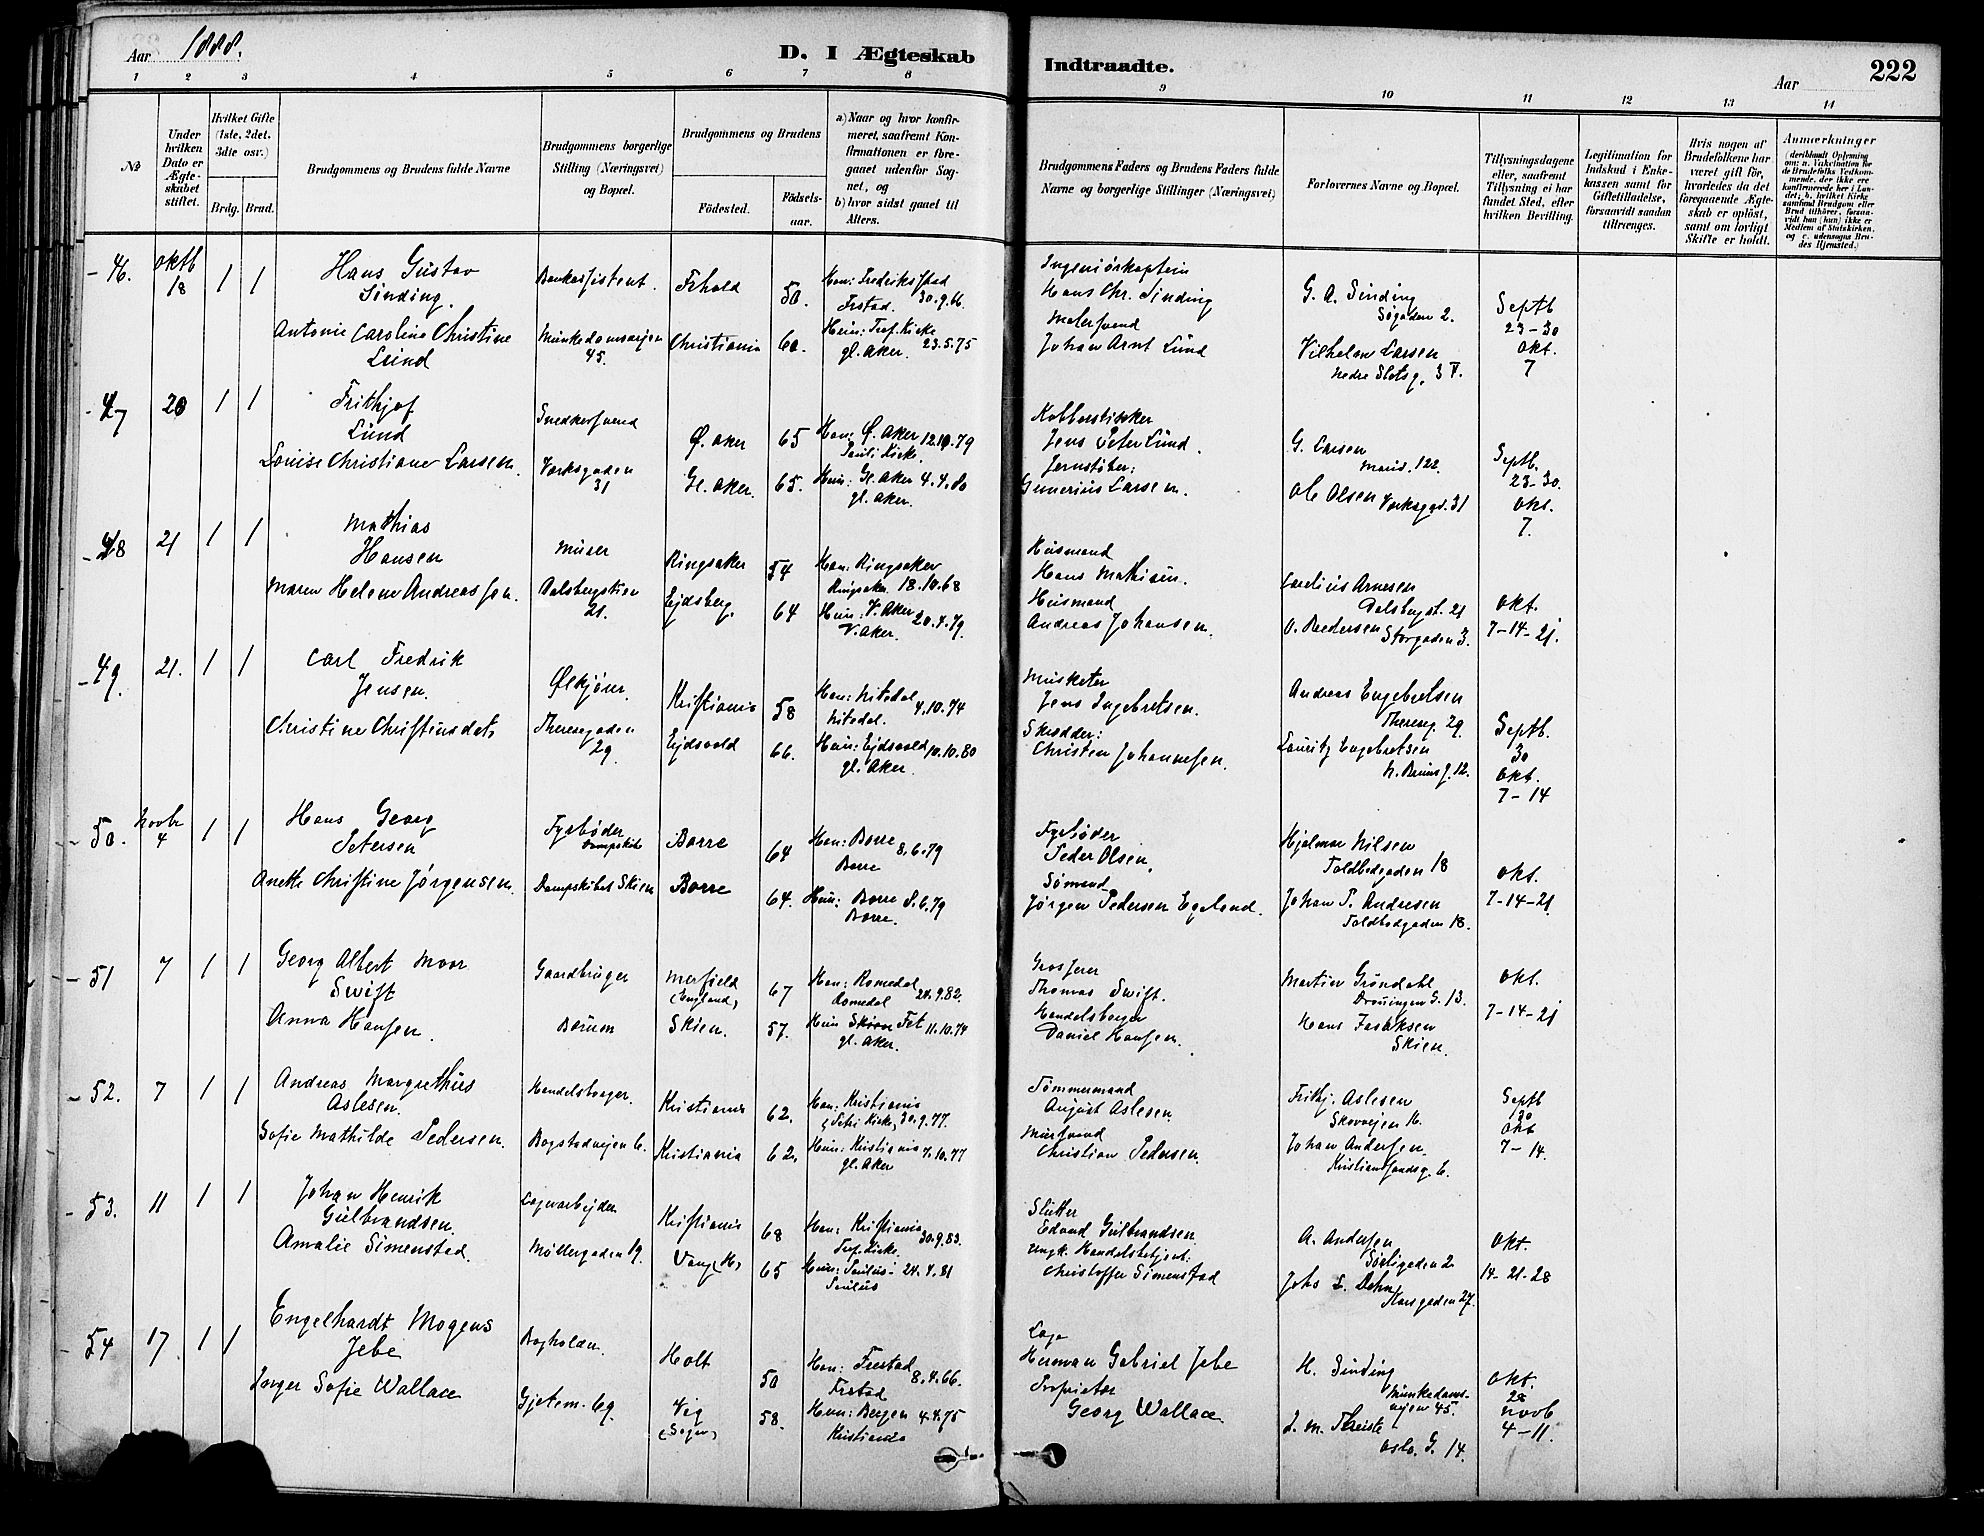 Aar 1888.
D. I Ægteskab
Indtraadte.
Aar
222
1 2 3 4 5 6 7 8 9 10 11 12 13 14
No
Under hvilken Dato er Ægteskabet stiftet.
Hvilket Gifte (1ste, 2det, 3die osv.)
Brdg. Brud.
Brudgommens og Brudens fulde Navne
Brudgommens borgerlige Stilling (Næringsvei) og Bopæl.
Brudgommens og Brudens
Fødested.
Fødselsaar.
a) Naar og hvor konfirmeret, saafremt Konfirmationen er foregaaet udenfor Sognet, og
b) hvor sidst gaaet til Alters.
Brudgommens Faders og Brudens Faders fulde Navne og borgerlige Stillinger (Næringsvei)
Forlovernes Navne og Bopæl.
Tillysningsdagene eller, saafremt Tillysning ei har fundet Sted, efter hvilken Bevilling.
Legitimation for Indskud i Enkekassen samt for Giftetilladelse, forsaavidt saadan tiltrænges.
Hvis nogen af Brudefolkene har været gift før, hvorledes da det foregaaende Ægteskab er opløst, samt om lovligt Skifte er holdt.
Anmerkninger
46. Oktb 18 1 1
Hans Gustav
Sinding.
Antonie Caroline Christine
Lund
Bankassistent.
Munkedamsveien
45.
50.
Christiania 60.
Han: Fredriksstad
30.9.66.
Frstad.
Hun: Tref. Kirke
gl. Aker. 23.5.75
Ingeniørkaptein
Hans Chr. Sinding
Malersvend
Johan Arnt Lund
G. A. Sinding
Søgaden 2.
Vilhelm Larsen
Nedre Slotsg. 3 V.
Septb
23-30
Okt.
7
47 20 1 1
Frithjof
Lund
Louise Christiane Larsen.
Snedkersvend
Vorksgaden
31
Ø. Aker 65
Gl. Aker. 65.
Han: Ø. Aker 12.10.79
Pauli Kirke.
Hun: Gl. Aker 4.4.80
gl. Aker.
Kobberstikker
Jens Peter Lund.
Jernstøber:
Gunerius Larsen.
G. Larsen
Marid. 122.
Ole Olsen Vorksgad. 31
Septb.
23-30.
Okt.
7.
48 21 1 1
Mathias
Hansen
Maren Helene Andreassen.
Murer
Dalsbergstien
21.
Ringsaker 54
Ejdsberg. 64
Han: Ringsaker
Ringsaker 18.10.68
Hun: V. Aker
V. Aker. 20.4.79.
Husmand
Hans Mathisen.
Husmand
Andreas Johansen.
Arnesen
Dalsbergst. 21
O. Pedersen Storgaden 3.
Okt.
7-14-21.
49. 21. 1 1
Carl Fredrik
Jensen.
Christine Christinsdat.
Ølkjører
Theresegaden
29.
Kristiania 58
Ejdsvold 66.
Han: Nitedal
Nitedal. 4.10.74
Hun: Ejdsvold 10.10.80
gl. Aker.
Musketer
Jens Ingebretsen.
Skrædder:
Christen Johannesen.
Andreas Engebretsen
Thereseg. 29.
Lauritz Engebretsen
N. Brunsg. 12.
Septb.
30
Okt.
7-14
50. Novbr 4 1 1
Hans Georg
Petersen
Anette Christine Jørgensen.
Fyrbøder
Dampskibet Skien
Borre 64
Borre 64.
Han: Borre 8.6.79
Borre
Hun: Borre 8.6.79
Borre.
Fyrbøder
Peder Olsen.
Sømand
Jørgen Pedersen Egeland.
Hjalmar Nilsen
Toldbodgaden 18
Johan P. Andresen
Toldbodgaden 18.
Okt.
7-14-21.
51 7 1 1
Georg Albert Moor
Swift
Anna Hansen.
Gaardbruger
Bærum
Merfield
(England) 67
Skien. 57.
Han: Romedal
Romedal 24.9.82.
11.10.74
gl. Aker.
Grosserer
Thomas Swift.
Handelsborger
Daniel Hansen.
Martin Grøndahl
Dronningen G. 13.
Hans Isaksen
Skien.
Okt.
7-14-21
52. 7 1 1
Andreas Margrethus
Aslesen.
Sofie Mathilde Pedersen.
Handelsborger.
Bogstadveien 6.
Kristiania 62.
Kristiania 62.
Han: Kristiania
(Petri Kirke) 30.9.77.
Hun: Kristiania 7.10.77
gl. Aker
Tømmermand
August Aslesen.
Mursvend
Christian Pedersen.
Frithj. Aslesen
Skovveien 16.
Johan Andersen.
Kristiansandsg. 6.
Septb
30
Okt
7-14.
53. 11 1 1
Johan Henrik
Gulbrandsen.
Amalie Simenstad.
Lagerarbejder
Møllergaden 19.
Kristiania 68
Vang (H) 65
Han: Kristiania 30.9.83.
Tref. Kirke.
Hun: Paulus 24.4.81
Paulus
Slutter
Edvard Gulbrandsen.
Ungk. Handelsbetjent.
Christoffer Simenstad
A. Andersen
Sørligaden 2
Johs L. Dehn
Korsgaden 27.
Okt.
14-21-28
54 17 1 1
Engelhardt Mogens
Jebe
Sofie Wallace
Bogholder.
Gjetem. 69.
Holt 50
Vig
(Sogn) 58.
Han: Frestad 8.4.66.
Frstad
Hun: Bergen 4.4.75
Kristiania
Læge
Herman Gabriel Jebe
Proprietær
Georg Wallace
H. Sinding
Munkedamsveien 45.
Oslo. G. 14.
Okt.
28
Novb
4-11.